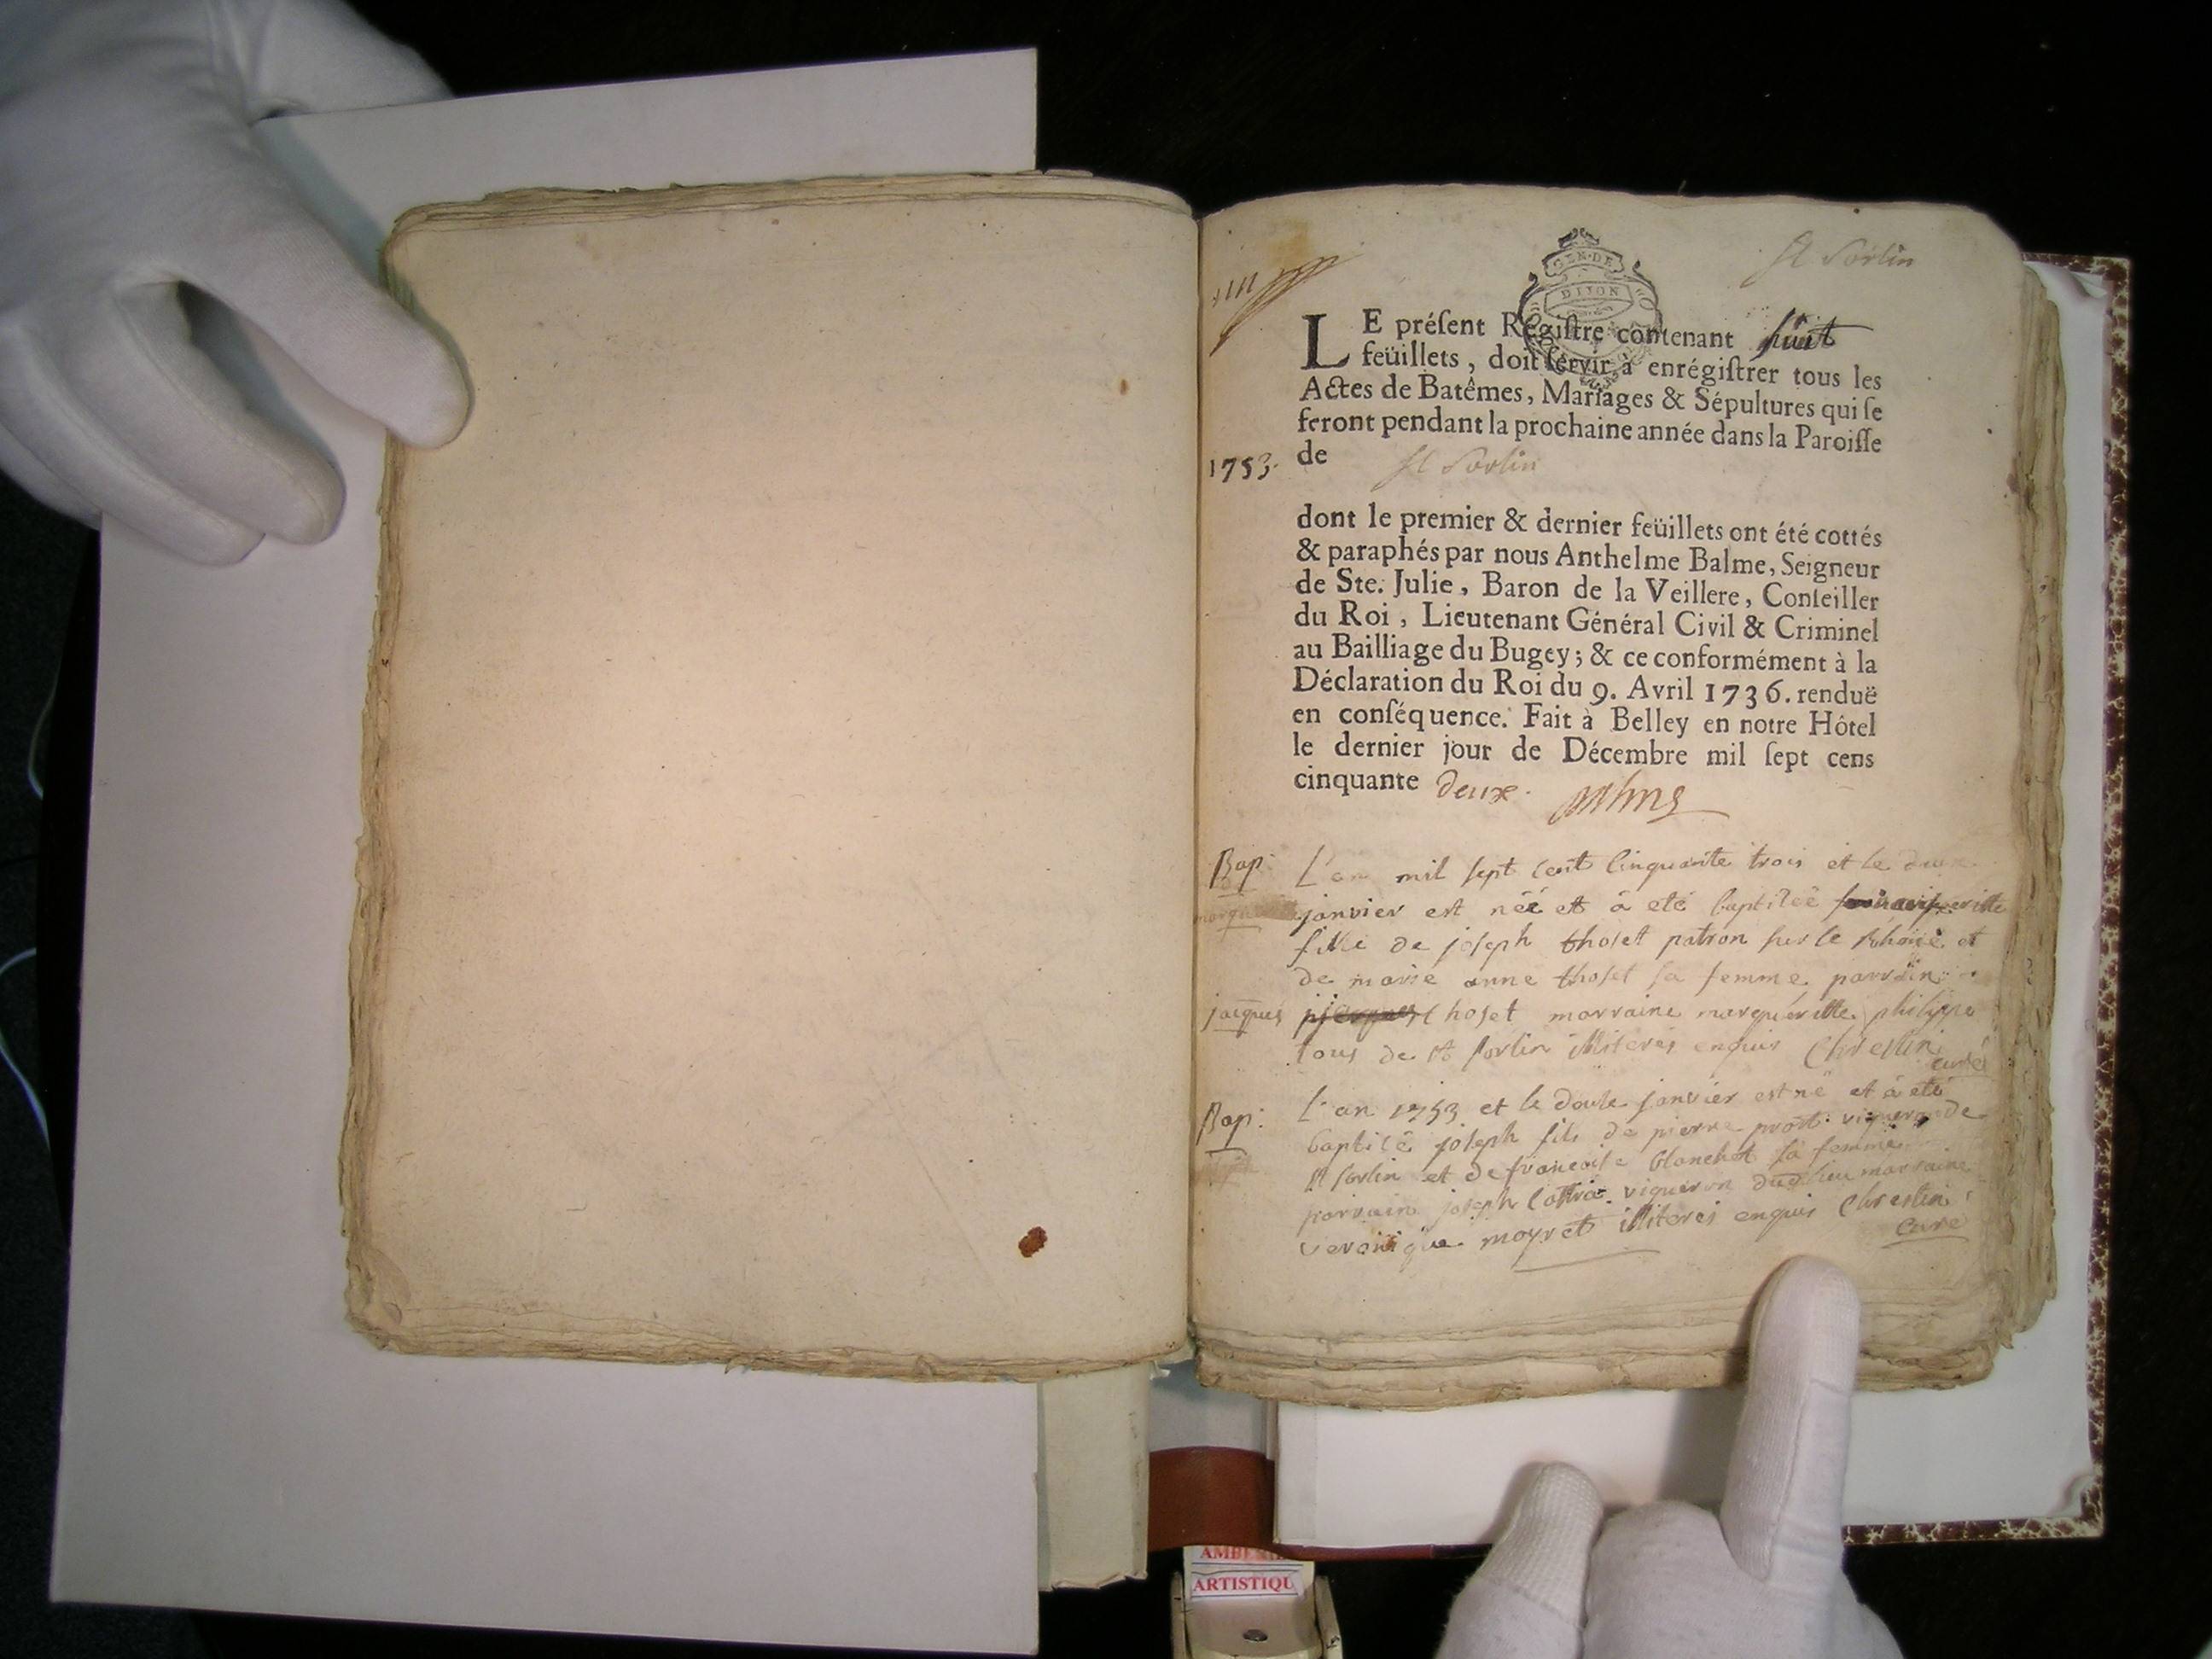 St Sorlin
GEN·DE
DIJON
LE préſent Regiſtre contenant huit
feüillets, doit ſervir à enrégiſtrer tous les
Actes de Batêmes, Mariages & Sépultures qui ſe
feront pendant la prochaine année dans la Paroiſſe
1753. de St Sorlin
dont le premier & dernier feüillets ont été cottés
& paraphés par nous Anthelme Balme, Seigneur
de Ste. Julie, Baron de la Veillere, Conſeiller
du Roi, Lieutenant Général Civil & Criminel
au Bailliage du Bugey; & ce conformément à la
Déclaration du Roi du 9. Avril 1736. renduë
en conſéquence. Fait à Belley en notre Hôtel
le dernier jour de Décembre mil ſept cens
cinquante deux. Balme
Bap: L'an mil sept cent cinquante trois et le deux
janvier est néé et à eté baptiséé
fille de joseph thoset patron sur le Rhône et
de marie anne thoset sa femme parrain
jacques thoset marraine margueritte philippe
tous de st sorlin illiteres enquis Chrestin
curé
Bap: L'an 1753 et le douse janvier est né et à eté
baptisé joseph fils de pierre prost vigneron de
st sorlin et de francoise blanchet sa femme
parrain joseph vigneron dud lieu marraine
veronique moyret illiteres enquis Chrestin
Curé
AMBE
ARTISTIQU